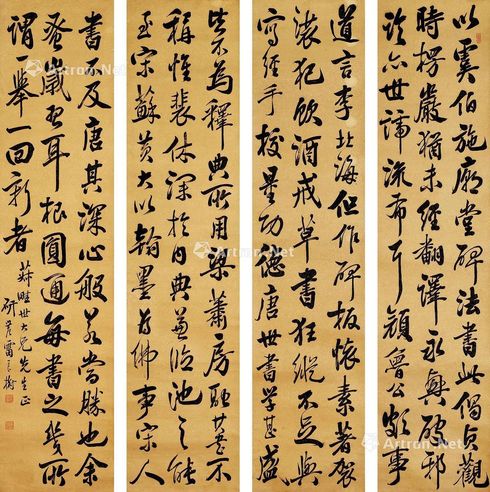 以虞伯施廟堂碑法書此偈貞觀
時楞嚴猶未經翻譯永興破邪
論亦世諦流布耳顏魯公頗事
道言李北海但作碑板懷素著袈
裟犯飲酒戒草書狂縱不足與
寫經手校量功德唐世書學甚盛
為釋典所用梁肅房融其書不
稱惟裴休深於內典兼臨池之能
至宋蘇黃大以翰墨為佛事宋人
書不及唐其深心般若當勝也余
歲耳根圓通每書之幾所
謂一舉一回新者
世大兄先生正
Artron.Net
Artron.Net
Artron.Net
Artron.Net